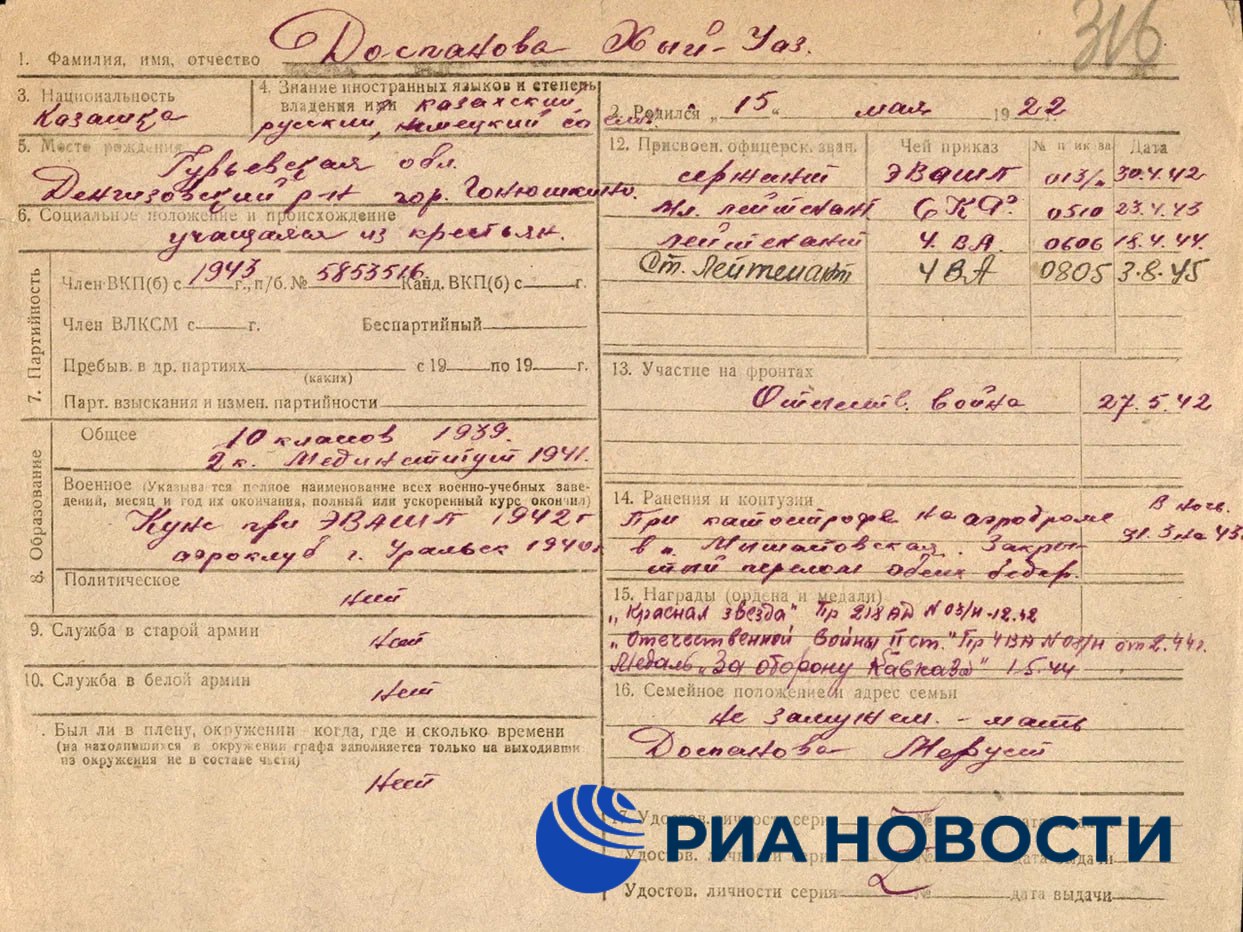 316
1. Фамилия, имя, отчество Доспанова Хый-Уаз.
3. Национальность
Казашка
4. Знание иностранных языков и степень
владения ими казахский,
русский, немецкий со
слов.
2. Родился „ 15 “ мая 1922 г.
5. Место рождения
Гурьевская обл.
Денгизовский р-н гор. Гонюшкино.
6. Социальное положение и происхождение
учащаяся из крестьян.
7. Партийность
Член ВКП(б) с 1943 г., п/б. № 5853516 Канд. ВКП(б) с г.
Член ВЛКСМ с г. Беспартийный
Пребыв. в др. партиях с 19 по 19 г.
(каких)
Парт. взыскания и измен. партийности
8. Образование
Общее 10 классов 1939.
2 к. Мединститут 1941.
Военное (Указывается полное наименование всех военно-учебных заве-
дений, месяц и год их окончания, полный или ускоренный курс окончил)
при ЭВАШП 1942 г
аэроклуб г. Уральск 1940г
Политическое
нет
9. Служба в старой армии
нет
10. Служба в белой армии
нет
. Был ли в плену, окружении когда, где и сколько времени
(на находившихся в окружении графа заполняется только на выходивши
из окружения не в составе части)
нет
12. Присвоен. офицерск. зван. Чей приказ № приказа Дата
сержант ЭВАШП 013/н 30.4.42
мл. лейтенант СКФ. 0510 23.4.43
лейтенант 4 ВА. 0606 18.4.44.
Ст. лейтенант 4 ВА 0805 3.8.45
13. Участие на фронтах
Отечеств. война 27.5.42
14. Ранения и контузии
При катострофе на аэродроме В ночь
в п. Мышатовская. Закры- 31.3 на 43
тый перелом обеих бедер.
15. Награды (ордена и медали)
„Красная звезда" Пр 218 АД N 03/Н-12.42
„Отечественной Войны II ст." Пр 4ВА N 08/Н от 2.44г.
Медаль „За оборону Кавказа" 1.5.44
16. Семейное положение и адрес семьи
не замужем. - мать
Доспанова Меруст
17. Удостов. личности серия № дата выдачи
Удостов. личности серия № дата выдачи
Удостов. личности серия № дата выдачи
РИА НОВОСТИ